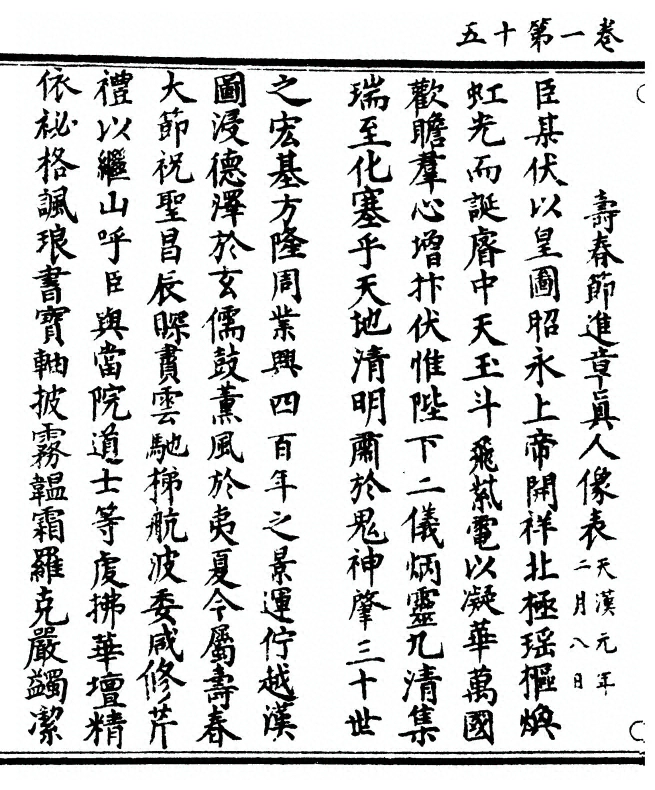 卷一第十五
壽春節進章眞人像表天漢元年二月八日
臣某伏以皇圖昭永上帝開祥北極瑶樞煥
虹光而誕睿中天玉斗飛紫電以凝華萬國
歡瞻羣心增抃伏惟陛下二儀炳靈九清集
瑞至化塞乎天地清明肅於鬼神肇三十世
之宏基方隆周業興四百年之景運佇越漢
圖浸德澤於玄儒鼓薰風於夷夏今屬壽春
大節祝聖昌辰琛賮雲馳梯航波委咸修芹
禮以繼山呼臣與當院道士等虔拂華壇精
依祕格諷琅書寶軸披霧韞霜羅克嚴蠲潔